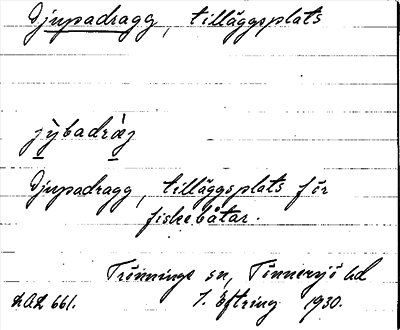 Djupadragg, tilläggsplats
jỳbadràg
Djupadragg, tilläggsplats för
fiskebåtar.
Trönninge sn, Tönnersjö hd
LAL 661. J. Eftring 1930.